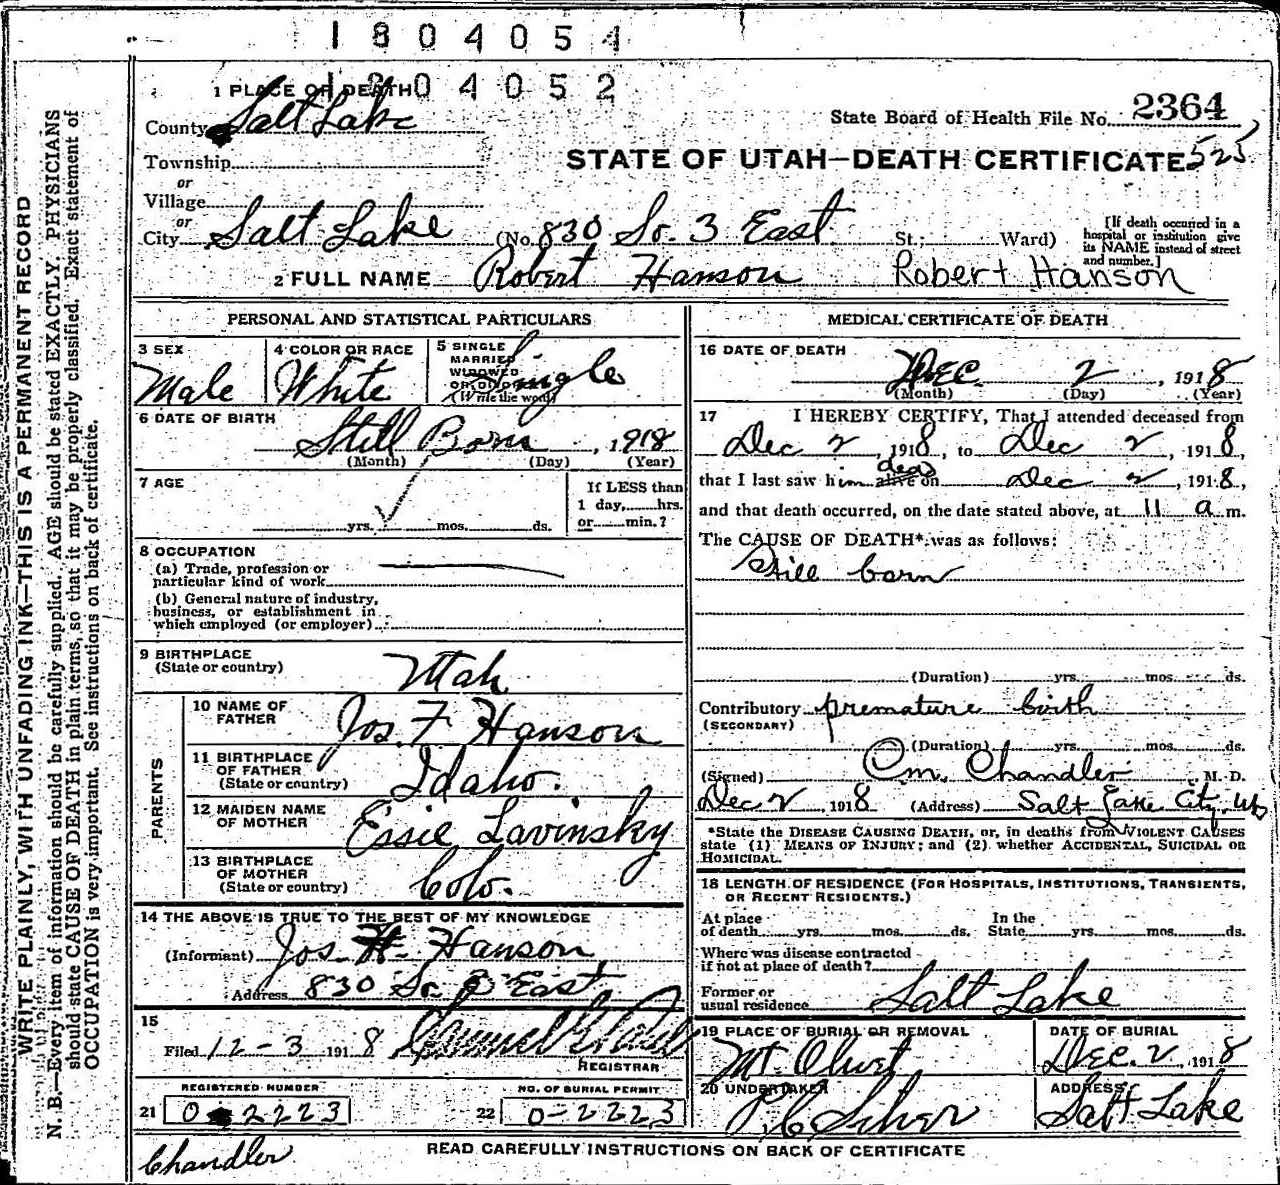 1804054
1804052
1 PLACE OF DEATH
County Salt Lake
State Board of Health File No. 2364
525
STATE OF UTAH—DEATH CERTIFICATE
Township
or
Village
or
City Salt Lake (No. 830 So. 3 East St.; Ward)
[If death occurred in a
hospital or institution give
its NAME instead of street
and number.]
2 FULL NAME Robert Hanson Robert Hanson
PERSONAL AND STATISTICAL PARTICULARS
3 SEX
Male
4 COLOR OR RACE
White
5 SINGLE
MARRIED
WIDOWED
OR DIVORCED
(Write the word)
Single
6 DATE OF BIRTH
Still Born, 1918
(Month) (Day) (Year)
7 AGE
yrs. mos. ds.
If LESS than
1 day, hrs.
or min.?
8 OCCUPATION
(a) Trade, profession or
particular kind of work
(b) General nature of industry,
business, or establishment in
which employed (or employer)
9 BIRTHPLACE
(State or country)
Utah
PARENTS
10 NAME OF
FATHER
Jos. F Hanson
11 BIRTHPLACE
OF FATHER
(State or country)
Idaho.
12 MAIDEN NAME
OF MOTHER
Essie Lavinsky
13 BIRTHPLACE
OF MOTHER
(State or country)
Colo.
14 THE ABOVE IS TRUE TO THE BEST OF MY KNOWLEDGE
(Informant) Jos. H. Hanson
Address 830 So. 3 East
15
Filed 12-3 1918
REGISTRAR
REGISTERED NUMBER
21 0-2223
NO. OF BURIAL PERMIT
22 0-2223
MEDICAL CERTIFICATE OF DEATH
16 DATE OF DEATH
Dec. 2, 1918
(Month) (Day) (Year)
17 I HEREBY CERTIFY, That I attended deceased from
Dec 2, 1918, to Dec 2, 1918,
that I last saw him alive on dead Dec 2, 1918,
and that death occurred, on the date stated above, at 11 a m.
The CAUSE OF DEATH* was as follows:
Still born
(Duration) yrs. mos. ds.
Contributory premature birth
(SECONDARY)
(Duration) yrs. mos. ds.
(Signed) Cm. Chandler M. D.
Dec 2, 1918 (Address) Salt Lake City, Ut
*State the DISEASE CAUSING DEATH, or, in deaths from VIOLENT CAUSES
state (1) MEANS OF INJURY; and (2) whether ACCIDENTAL, SUICIDAL OR
HOMICIDAL.
18 LENGTH OF RESIDENCE (FOR HOSPITALS, INSTITUTIONS, TRANSIENTS,
OR RECENT RESIDENTS.)
At place
of death yrs. mos. ds.
In the
State yrs. mos. ds.
Where was disease contracted
if not at place of death?
Former or
usual residence Salt Lake
19 PLACE OF BURIAL OR REMOVAL
Mt. Olivet
DATE OF BURIAL
Dec. 2, 1918
20 UNDERTAKER
ADDRESS
Salt Lake
Chandler
READ CAREFULLY INSTRUCTIONS ON BACK OF CERTIFICATE
WRITE PLAINLY, WITH UNFADING INK—THIS IS A PERMANENT RECORD
N. B.—Every item of information should be carefully supplied. AGE should be stated EXACTLY. PHYSICIANS
should state CAUSE OF DEATH in plain terms, so that it may be properly classified. Exact statement of
OCCUPATION is very important. See instructions on back of certificate.